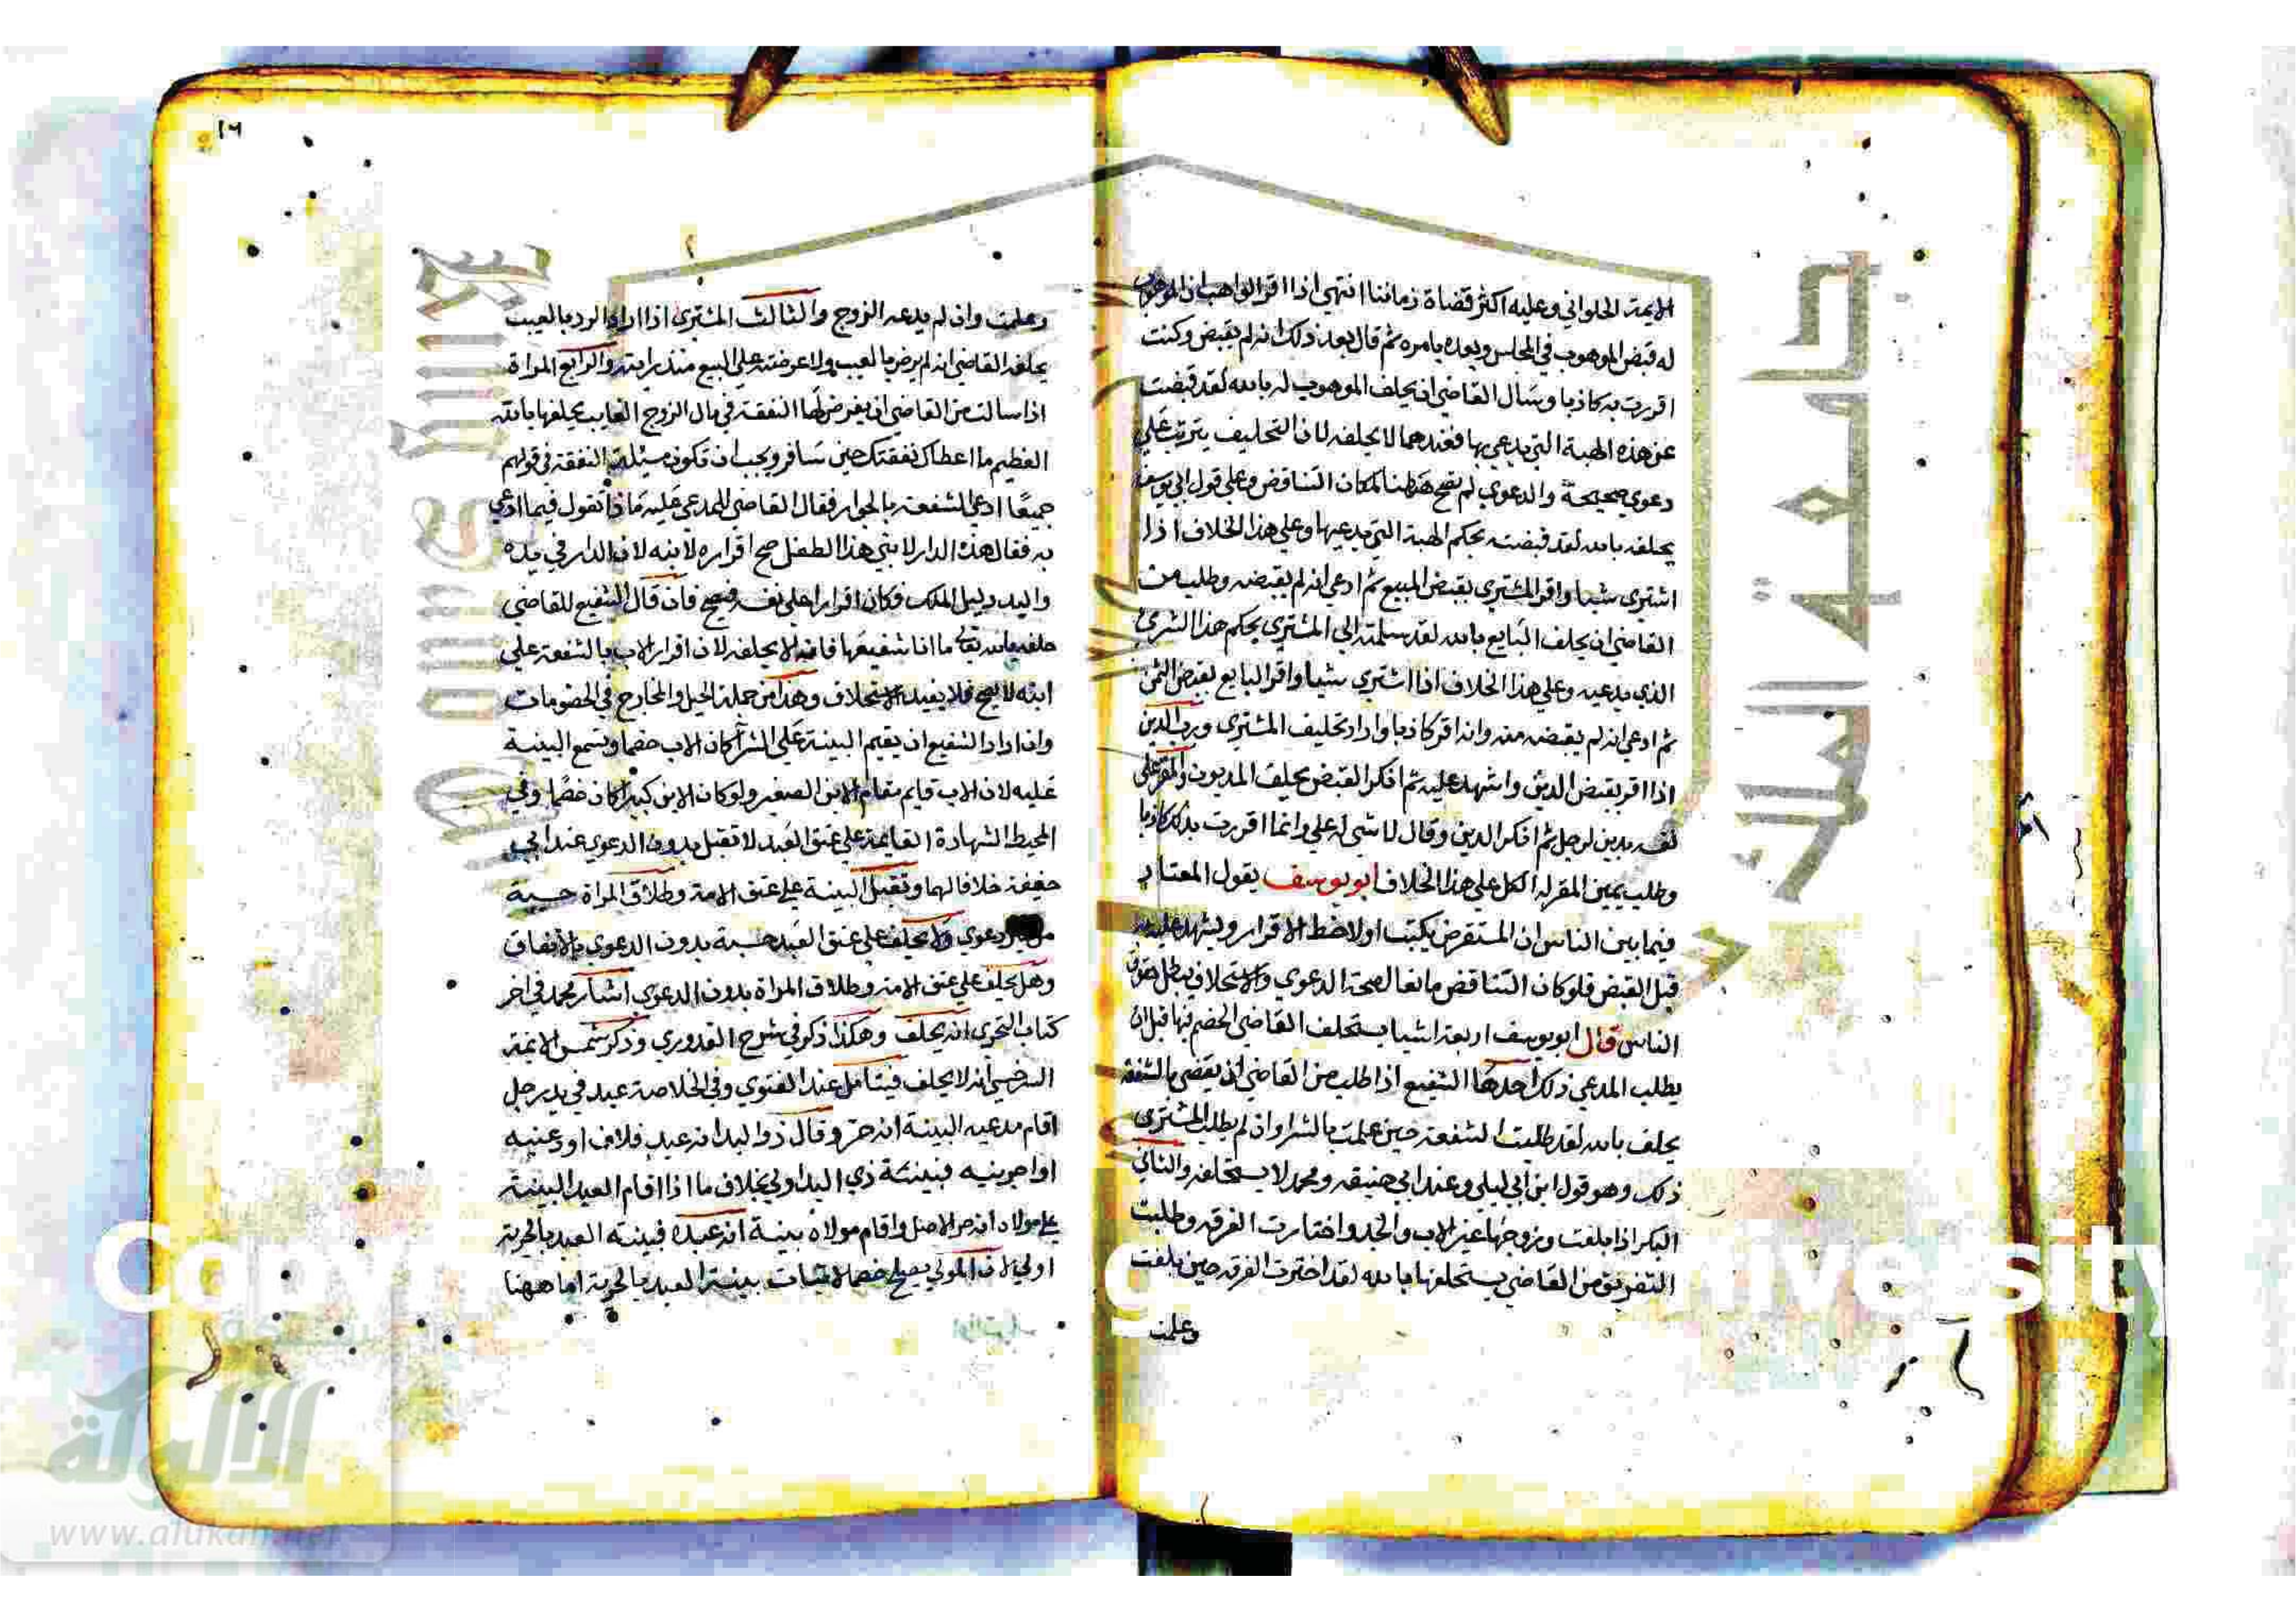 الايمة الحلواني وعليه اكثر قضاة زماننا انتهي اذا اقر الواهب ان الموهوب
له قبض الموهوب في المجلس وبعده بامره ثم قال بعد ذلك انه لم يقبض وكنت
اقررت به كاذبا وسال القاضي ان يحلف الموهوب له بالله لقد قبضت
عن هذه الهبة التي يدعي بها فعندهما لا يحلفه لان التحليف يترتب علي
دعوي صحيحة والدعوي لم تصح ههنا لمكان التناقض وعلي قول ابي يوسف
يحلفه بالله لقد قبضته بحكم الهبة التي يدعيها وعلي هذا الخلاف اذا
اشتري شيا واقر المشتري بقبض المبيع ثم ادعي انه لم يقبضه وطلب من
القاضي ان يحلف البايع بالله لقد سلمته الي المشتري بحكم هذا الشري
الذي يدعيه وعلي هذا الخلاف اذا اشتري شيا واقر البايع بقبض الثمن
ثم ادعي انه لم يقبضه منه وانه اقر كاذبا واراد تحليف المشتري ورب الدين
اذا اقر بقبض الدين واشهد عليه ثم انكر القبض يحلف المديون والمقر علي
نفسه بدين لرجل ثم انكر الدين وقال لا شي له علي وانما اقررت بذلك كاذبا
وطلب يمين المقر له الكل علي هذا الخلاف ابو يوسف يقول المعتاد
فيما بين الناس ان المستقرض يكتب اولا خط الاقرار ويشهد عليه
قبل القبض فلو كان التناقض مانعا لصحة الدعوي والاستحلاف يبطل حقوق
الناس قال ابو يوسف اربعة اشيا يستحلف القاضي الخصم فيها قبل ان
يطلب المدعي ذلك احدها الشفيع اذا طلب من القاضي ان يقضي بالشفعة
يحلف بالله لقد طلبت الشفعة حين علمت بالشرا وان لم يطلب المشتري
ذلك وهو قول ابن ابي ليلي وعند ابي حنيفه ومحمد لا يستحلفه والثاني
البكر اذا بلغت وزوجها غير الاب والجد واختارت الفرقه وطلبت
التفريق من القاضي يستحلفها بالله لقد اخترت الفرقه حين بلغت
وعلمت
١٦
وعلمت وان لم يدعه الزوج والثالث المشتري اذا اراد الرد بالعيب
يحلفه القاضي انه لم يرض بالعيب ولا عرضته علي البيع منذ رايته والرابع المراة
اذا سالت من القاضي ان يفرض لها النفقة في مال الزوج الغايب يحلفها بالله
العظيم ما اعطاك نفقتك حين سافر ويجب ان تكون مسئلة النفقة في قولهم
جميعًا ادعي الشفعة بالجوار فقال القاضي للمدعي عليه ماذا تقول فيما ادعي
به فقال هذه الدار لابني هذا الطفل صح اقراره لابنه لان الدار في يده
واليد دليل الملك فكان اقرارا علي نفسه فيصح فان قال الشفيع للقاضي
حلفه بالله تعالي ما انا شفيعها فانه لا يحلفه لان اقرار الاب بالشفعة علي
ابنه لا يصح فلا يفيد الاستحلاف وهذا من جملة الحيل والمخارج في الخصومات
وان اراد الشفيع ان يقيم البينة علي الشرا كان الاب خصما وتسمع البينة
عليه لان الاب قايم مقام الابن الصغير ولو كان الابن كبيرا كان خصمًا وفي
المحيط الشهادة القايمة علي عتق العبد لا تقبل بدون الدعوي عند ابي
حنيفة خلافا لهما وتقبل البينة علي عتق الامة وطلاق المراة حسبة
من دعوي ولا يحلف علي عتق العبد حسبة بدون الدعوي بالاتفاق
وهل يحلف علي عتق الامة وطلاق المراة بدون الدعوي اشار محمد في اخر
كتاب التحري انه يحلف وهكذا ذكر في شرح القدوري وذكر شمس الايمة
السرخسي انه لا يحلف فيتامل عند الفتوي وفي الخلاصة عبد في يد رجل
اقام مدعيه البينة انه حر وقال ذو اليد انه عبد فلان اودعنيه
او اجرنيه فبينة ذي اليد اولي بخلاف ما اذا اقام العبد البينة
علي مولاه انه حر الاصل واقام مولاه بينة انه عبده فبينة العبد بالحرية
اولي لان المولي يصلح خصما لاثبات بينة العبد بالحرية اما ههنا
جامعة الملك سعود
الألوكة
www.alukah.net